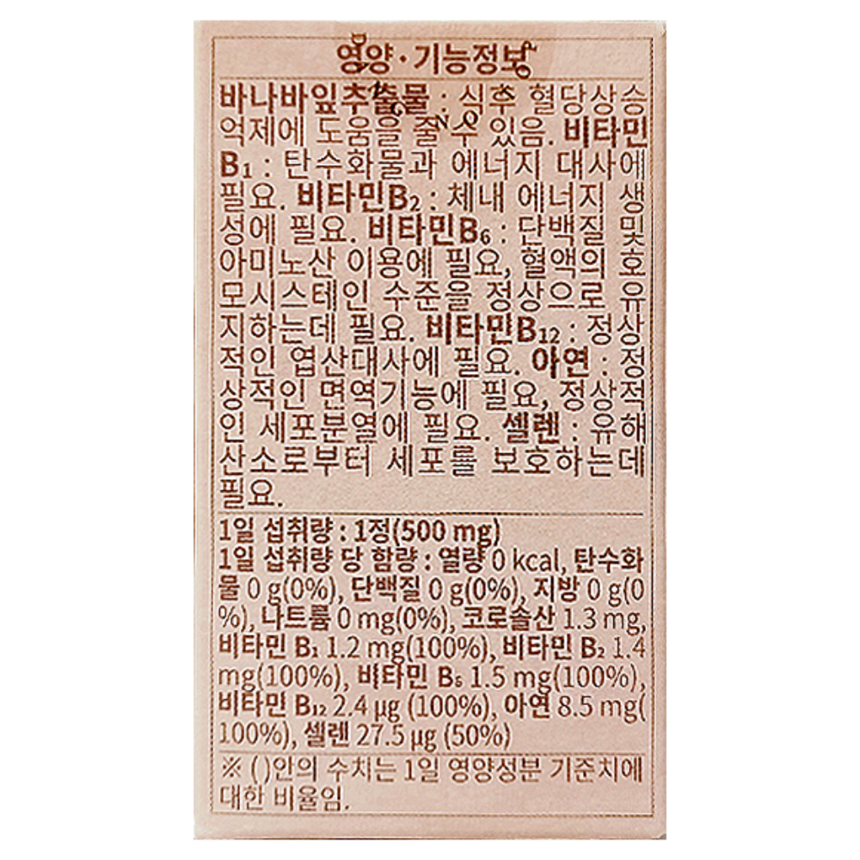 영양·기능정보
바나바잎추출물 : 식후 혈당상승
억제에 도움을 줄 수 있음. 비타민
B₁ : 탄수화물과 에너지 대사에
필요. 비타민B₂ : 체내 에너지 생
성에 필요. 비타민B₆ : 단백질 및
아미노산 이용에 필요, 혈액의 호
모시스테인 수준을 정상으로 유
지하는데 필요. 비타민B₁₂ : 정상
적인 엽산대사에 필요. 아연 : 정
상적인 면역기능에 필요, 정상적
인 세포분열에 필요. 셀렌 : 유해
산소로부터 세포를 보호하는데
필요.
1일 섭취량 : 1정(500 mg)
1일 섭취량 당 함량 : 열량 0 kcal, 탄수화
물 0 g(0%), 단백질 0 g(0%), 지방 0 g(0
%), 나트륨 0 mg(0%), 코로솔산 1.3 mg,
비타민 B₁ 1.2 mg(100%), 비타민 B₂ 1.4
mg(100%), 비타민 B₆ 1.5 mg(100%),
비타민 B₁₂ 2.4 µg (100%), 아연 8.5 mg(
100%), 셀렌 27.5 µg (50%)
※ ( )안의 수치는 1일 영양성분 기준치에
대한 비율임.